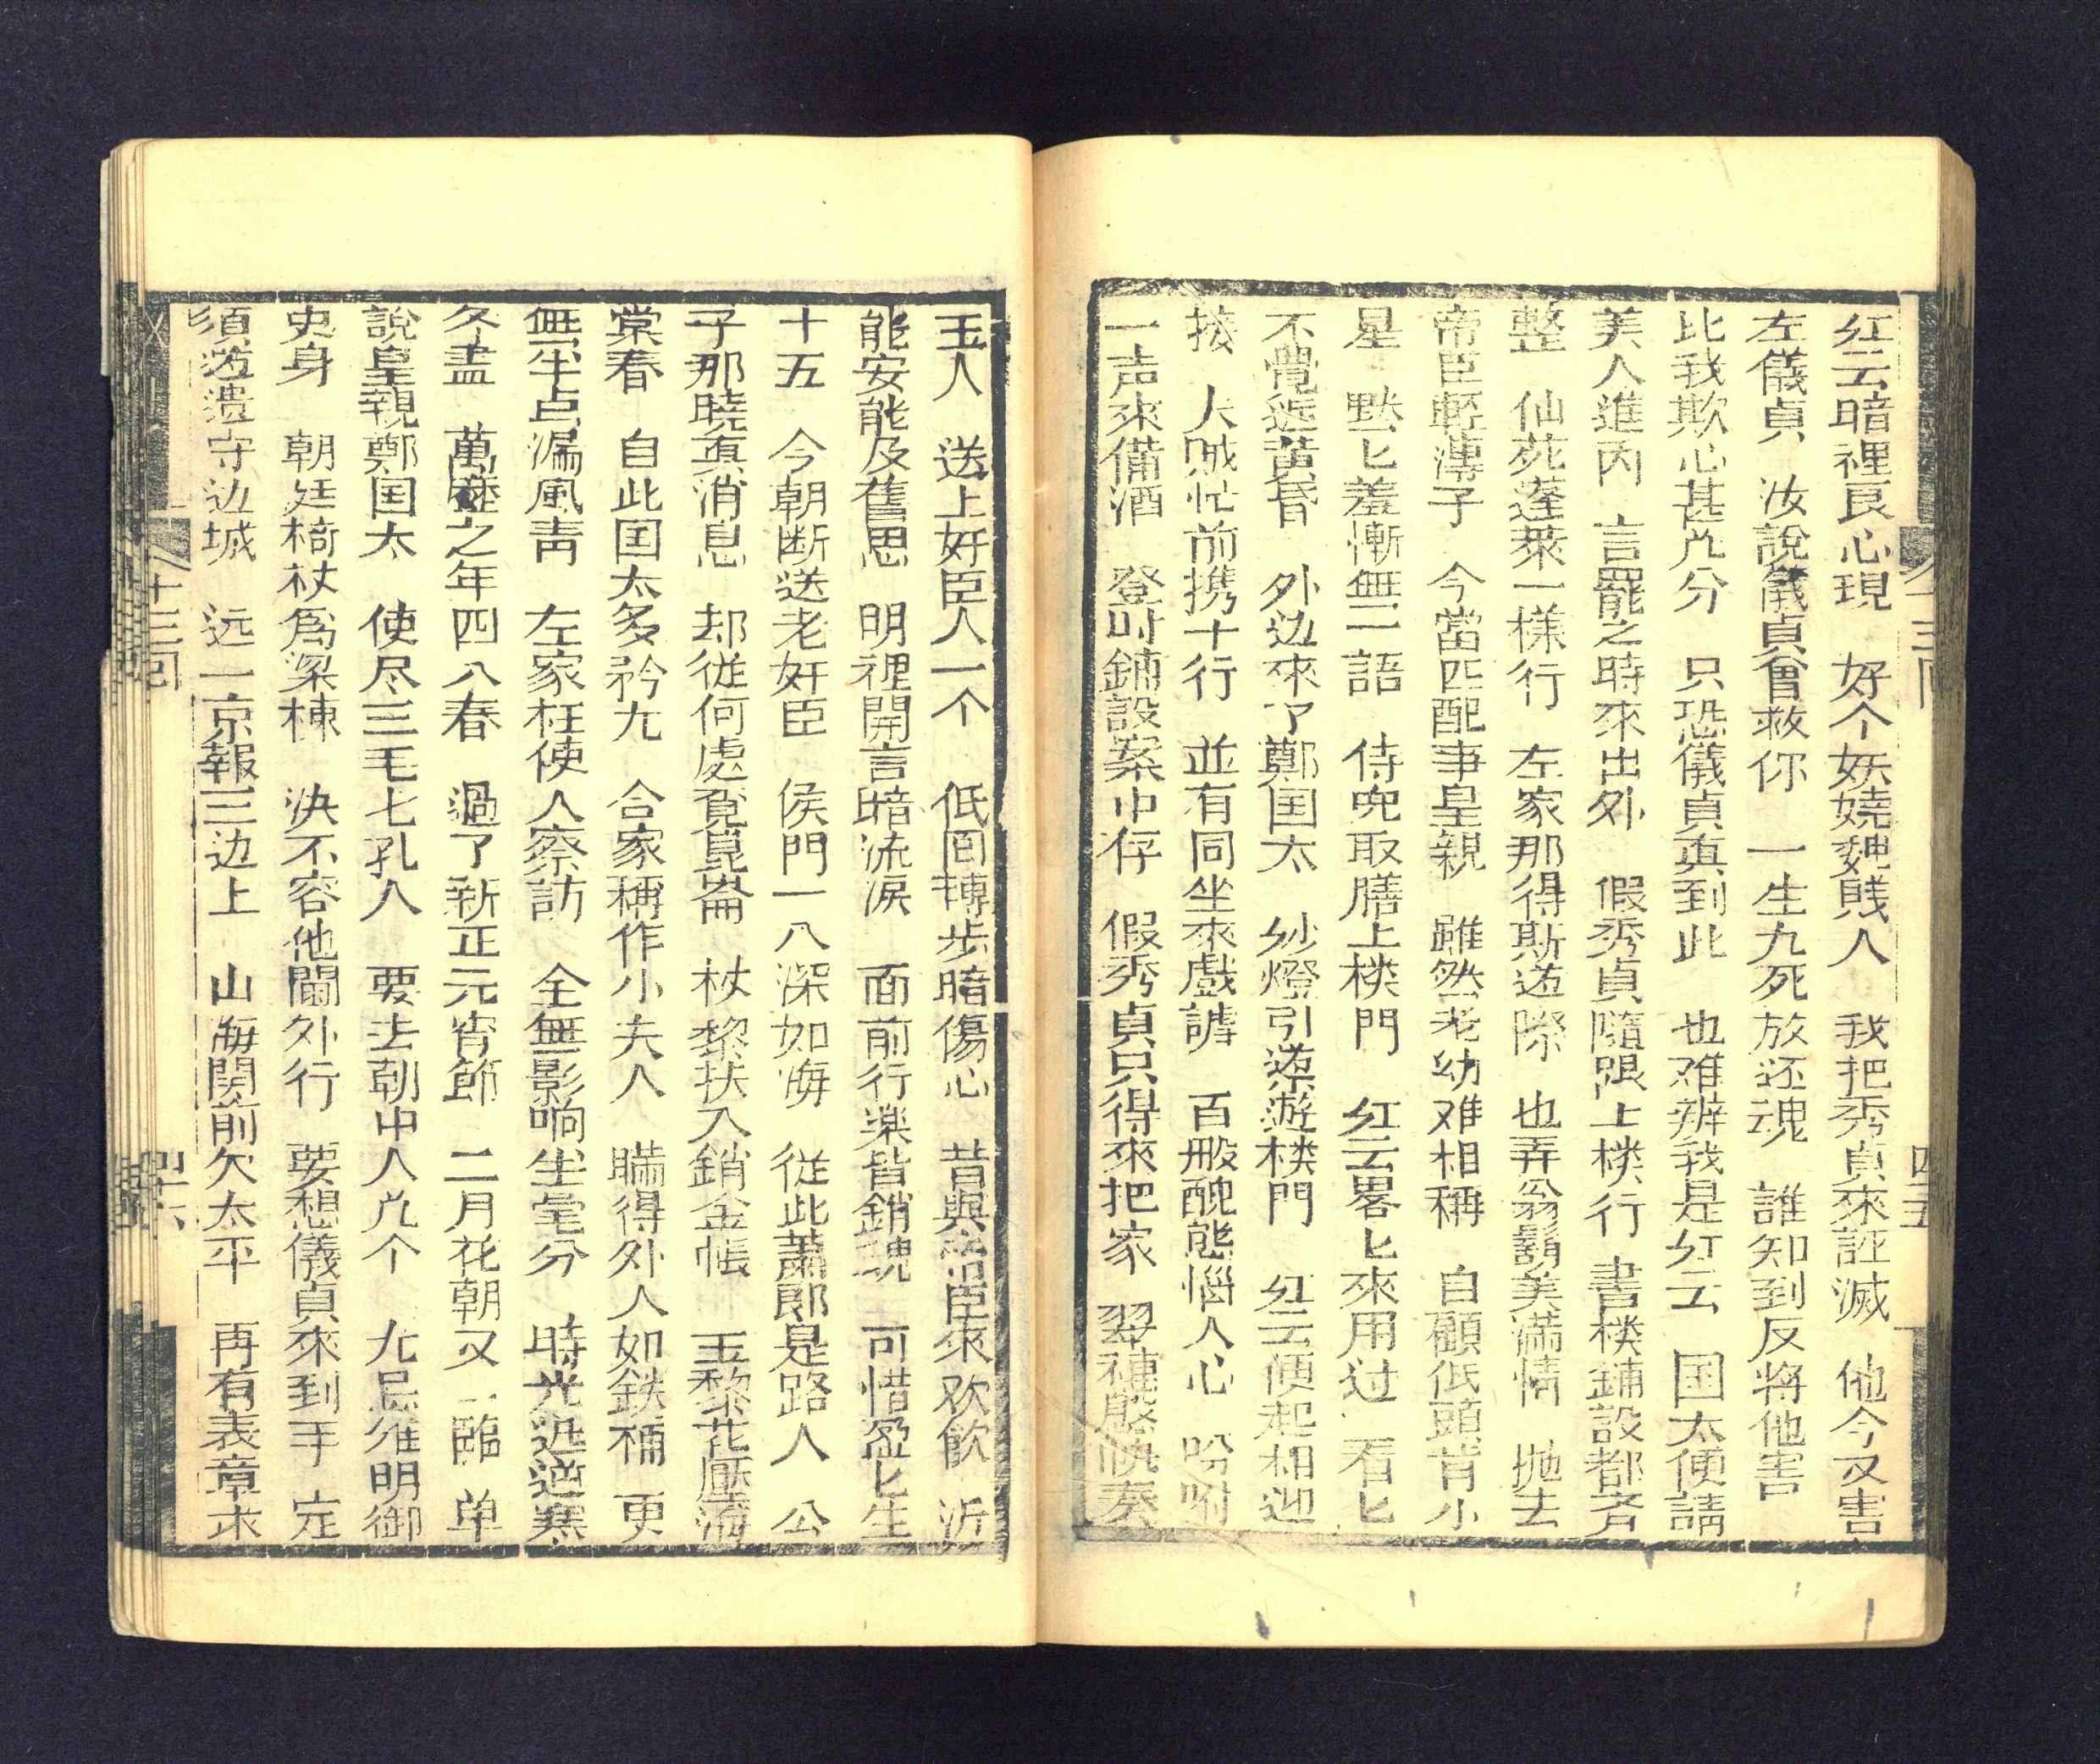 红云暗裡良心現　好个妖嬈魏賎人　我把秀貞來誣滅　他今又害
左儀貞　汝說儀貞曾救你　一生九死放还魂　誰知到反将他害
比我欺心甚几分　只恐儀貞真到此　也难辨我是红云　国太便請
美人進內　言罷之時來出外　假秀貞隨跟上楼行　書楼鋪設都齐
整　仙苑蓬萊一樣行　左家那得斯遊際　也弄翁鬍美满情　抛去
帝臣輕薄子　今當匹配事皇親　雖然老幼难相稱　自顧低頭肯小
星　黙匕羞慚無一語　侍兒取膳上楼門　红云畧匕來用过　看匕
不覺近黄昏　外边來了鄭国太　纱燈引遶遊楼門　红云便起相迎
接　大贼忙前携十行　並有同坐來戲謔　百般醜態惱人心　吩咐
一声來備酒　登时鋪設案中存　假秀貞只得來把家　翠禮　奏
玉人　送上奸臣人一个　低回轉步暗傷心　昔與帝臣來欢飲　近
能安能及舊思　明裡開言暗流淚　面前行楽皆銷魂　可惜盈匕生
十五　今朝断送老奸臣　侯門一入深如海　從此蕭郎是路人　公
子那曉真消息　却從何處覓崑崙　杖藜扶入銷金帳　玉黎花壓海
棠春　自此国太多矜尢　合家稱作小夫人　瞞得外人如鉄桶　更
無半点漏風声　左家枉使人察訪　全無影响半毫分　時光迅速寒
冬盡　萬歴之年四八春　過了新正元宵節　二月花朝又一臨　单
說皇親鄭国太　使尽三毛七孔人　要去朝中人几个　尢忌維明御
史身　朝廷椅杖為梁棟　决不容他關外行　要想儀貞來到手　定
須遊遣守边城　远一京報三边上　山海関前欠太平　再有表章求
十三回
四五
十三回
四十六